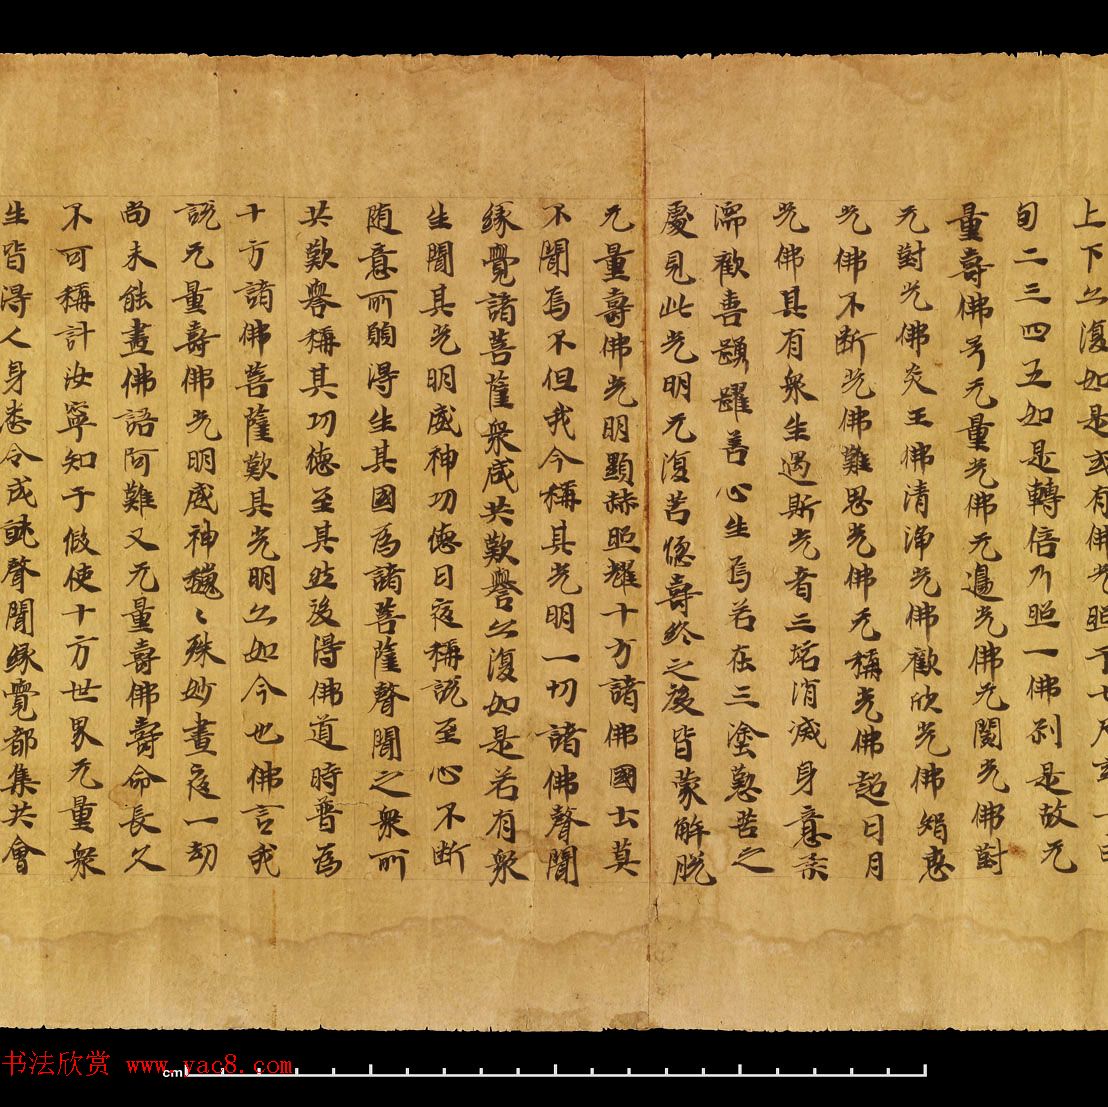 上下亦復如是或有佛光照于七尺或一由
旬二三四五如是轉倍乃照一佛刹是故无
量壽佛号无量光佛无邊光佛无閡光佛對
无對光佛炎王佛清淨光佛歡欣光佛智惠
光佛不断光佛難思光佛无稱光佛超日月
光佛其有衆生遇斯光者三垢消滅身意柔
濡歡善踴躍善心生焉若在三塗懃苦之
處見此光明无復苦惱壽終之後皆蒙解脫
无量壽佛光明顯赫照耀十方諸佛國土莫
不聞焉不但我今稱其光明一切諸佛聲聞
緣覺諸菩薩衆咸共歎譽亦復如是若有衆
生聞其光明威神功德日夜稱說至心不断
随意所願得生其國為諸菩薩聲聞之衆所
共歎譽稱其功德至其然後得佛道時普為
十方諸佛菩薩歎其光明亦如今也佛言我
說无量壽佛光明威神巍〻殊妙晝夜一劫
尚未能盡佛語阿難又无量壽佛壽命長久
不可稱計汝寧知乎假使十方世界无量衆
生皆得人身悉令成就聲聞緣覺都集共會
书法欣赏 www.yac8.com
cm